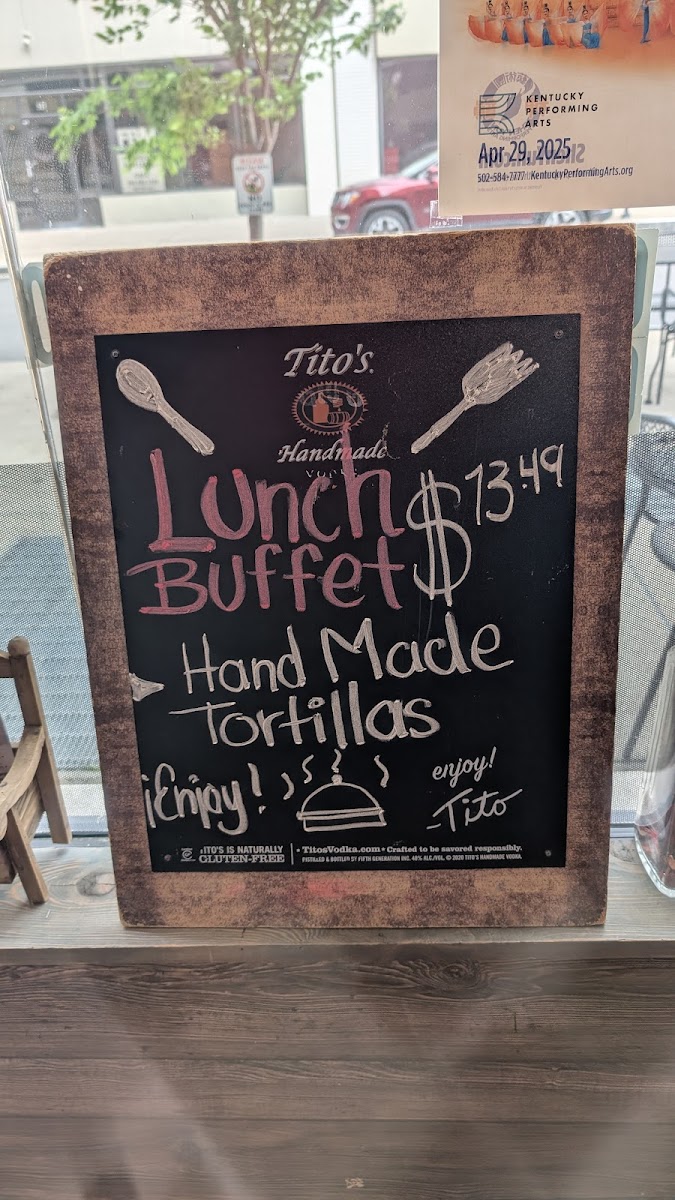 KENTUCKY
PERFORMING
ARTS
Apr 29, 2025
502-584-7777 KentuckyPerformingArts.org
Tito's
Handmade
VODKA
Lunch
Buffet
$13.49
Hand Made
Tortillas
¡Enjoy!
enjoy!
-Tito
TITO'S IS NATURALLY
GLUTEN-FREE
• TitosVodka.com • Crafted to be savored responsibly.
DISTILLED & BOTTLED BY FIFTH GENERATION INC. 40% ALC./VOL. © 2020 TITO'S HANDMADE VODKA.